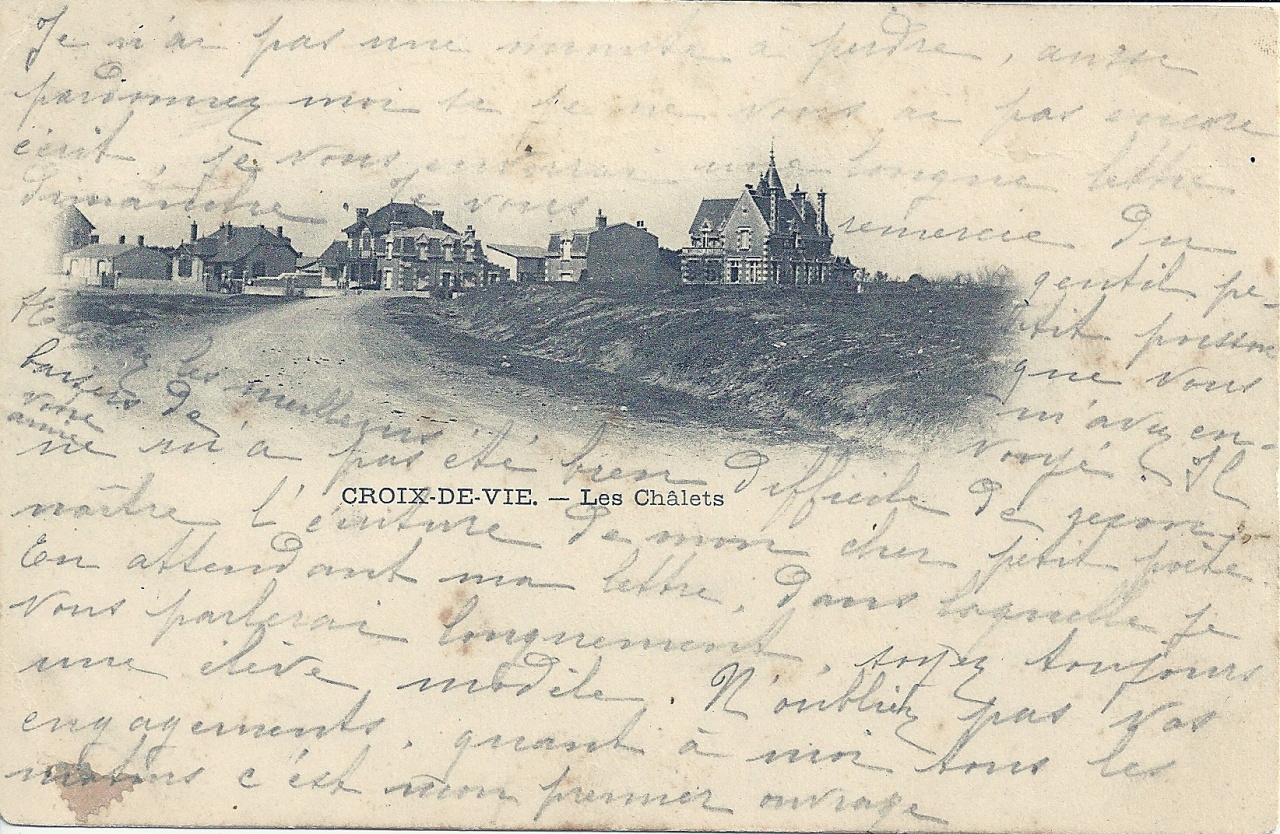 Je n'ai pas une minute à perdre, aussi
pardonnez moi si je ne vous ai pas encore
écrit, je vous enverrai une longue lettre
Dimanche. Je vous remercie du
gentil pe-
tit poisson
que vous
m'avez en-
voyé. Il
ne m'a pas été bien difficile de recon-
naître l'écriture de mon cher petit poète
En attendant ma lettre, dans laquelle je
vous parlerai longuement, soyez toujours
une élève modèle. N'oubliez pas vos
engagements, quant à moi tous les
matins c'est mon premier ouvrage
les meilleurs
baisers de
votre
amie
CROIX-DE-VIE. — Les Châlets